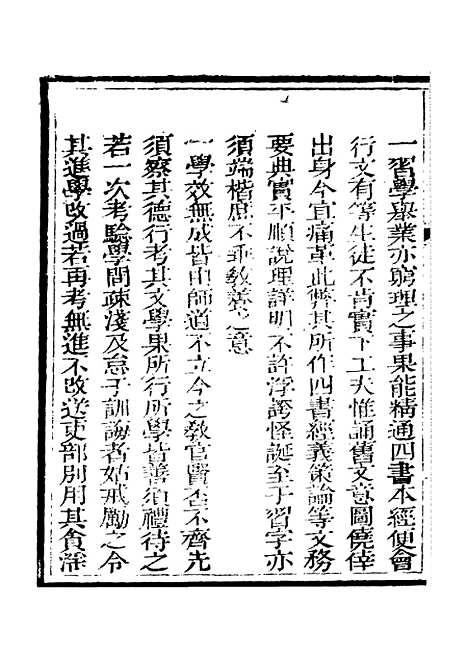 一習學舉業亦窮理之事果能精通四書本經便會
行文有等生徒不肯實下工夫惟誦舊文意圖僥倖
出身今宜痛革此弊其所作四書經義策論等文務
要典實平順說理詳明不許浮誇怪誕至于習字亦
須端楷庶不乖敎養之意
一學效無成皆由師道不立今之敎官賢否不齊先
須察其德行考其文學果所行所學皆善須禮待之
若一次考驗學問疎淺及怠于訓誨者姑戒勵之令
其進學改過若再考無進不改送吏部別用其貪淫